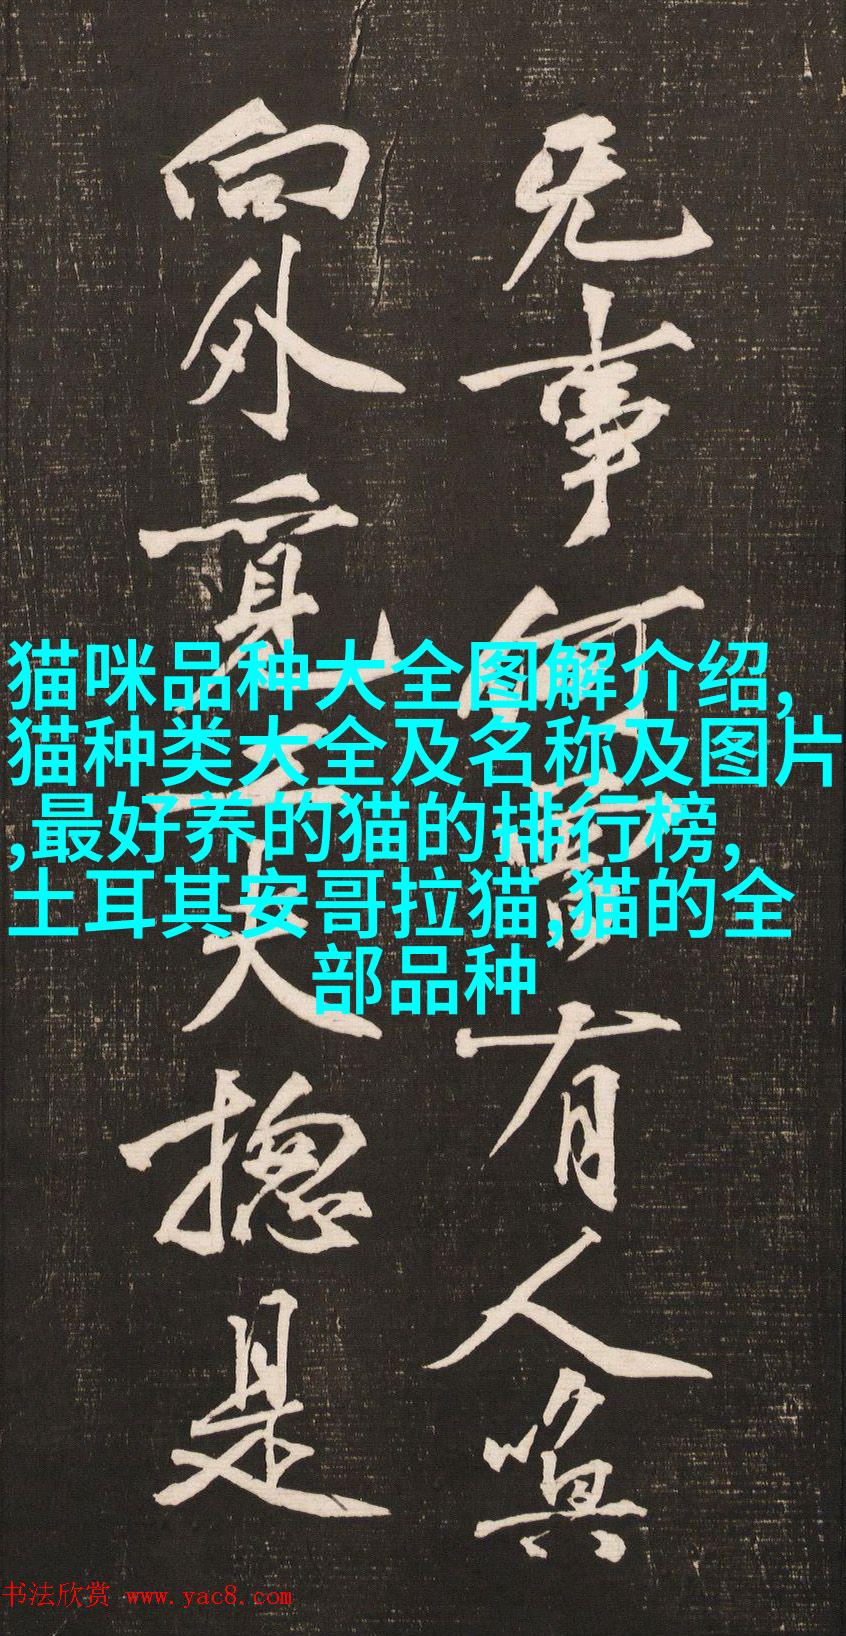 事何有人嗔
向外夫揔是
猫咪品种大全图解介绍,
猫种类大全及名称及图片
,最好养的猫的排行榜,
土耳其安哥拉猫,猫的全
部品种
书法欣赏 www.yac8.com